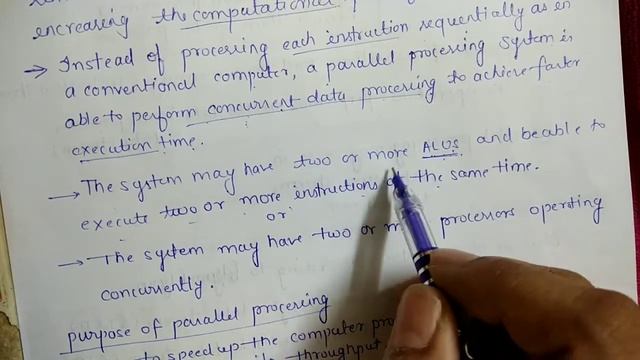 encreasing the computational
→ Instead of processing each instruction sequentially as in
a conventional computer, a parallel processing system is
able to perform concurrent data processing to achieve faster
execution time.
→ The system may have two or more ALUS and be able to
execute two or more instructions at the same time.
or
→ The system may have two or processors operating
concurrently.
purpose of parallel processing
to speed up the computer
throughput